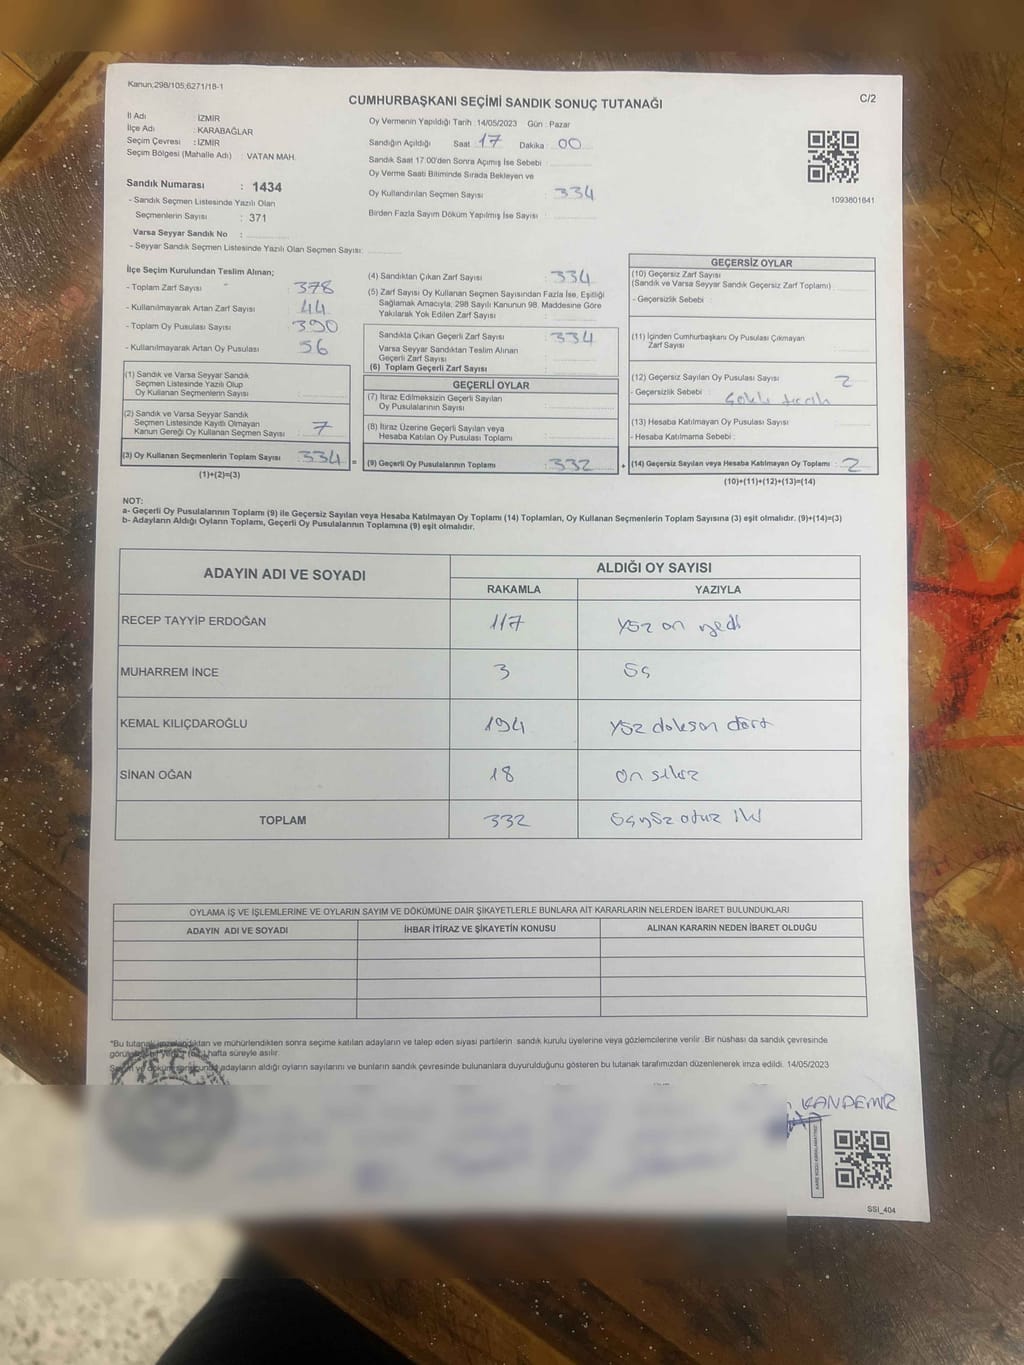 Kanun;298/105;6271/18-1
C/2
CUMHURBAŞKANI SEÇİMİ SANDIK SONUÇ TUTANAĞI
İl Adı : İZMİR
İlçe Adı : KARABAĞLAR
Seçim Çevresi : İZMİR
Seçim Bölgesi (Mahalle Adı) : VATAN MAH.
Sandık Numarası : 1434
- Sandık Seçmen Listesinde Yazılı Olan
Seçmenlerin Sayısı : 371
Varsa Seyyar Sandık No :
- Seyyar Sandık Seçmen Listesinde Yazılı Olan Seçmen Sayısı:
Oy Vermenin Yapıldığı Tarih :14/05/2023 Gün : Pazar
Sandığın Açıldığı Saat 17 Dakika 00
Sandık Saat 17:00'den Sonra Açımış İse Sebebi :
Oy Verme Saati Bitiminde Sırada Bekleyen ve
Oy Kullandırılan Seçmen Sayısı : 334
Birden Fazla Sayım Döküm Yapılmış İse Sayısı :
1093601641
İlçe Seçim Kurulundan Teslim Alınan;
- Toplam Zarf Sayısı : 378
- Kullanılmayarak Artan Zarf Sayısı : 44
- Toplam Oy Pusulası Sayısı : 390
- Kullanılmayarak Artan Oy Pusulası : 56
(1) Sandık ve Varsa Seyyar Sandık
Seçmen Listesinde Yazılı Olup
Oy Kullanan Seçmenlerin Sayısı :
(2) Sandık ve Varsa Seyyar Sandık
Seçmen Listesinde Kayıtlı Olmayan
Kanun Gereği Oy Kullanan Seçmen Sayısı : 7
(3) Oy Kullanan Seçmenlerin Toplam Sayısı : 334 =
(1)+(2)=(3)
(4) Sandıktan Çıkan Zarf Sayısı : 334
(5) Zarf Sayısı Oy Kullanan Seçmen Sayısından Fazla İse, Eşitliği
Sağlamak Amacıyla, 298 Sayılı Kanunun 98. Maddesine Göre
Yakılarak Yok Edilen Zarf Sayısı :
Sandıkta Çıkan Geçerli Zarf Sayısı : 334
Varsa Seyyar Sandıktan Teslim Alınan
Geçerli Zarf Sayısı :
(6) Toplam Geçerli Zarf Sayısı :
GEÇERLİ OYLAR
(7) İtiraz Edilmeksizin Geçerli Sayılan
Oy Pusulalarının Sayısı :
(8) İtiraz Üzerine Geçerli Sayılan veya
Hesaba Katılan Oy Pusulası Toplamı :
(9) Geçerli Oy Pusulalarının Toplamı : 332 +
GEÇERSİZ OYLAR
(10) Geçersiz Zarf Sayısı
(Sandık ve Varsa Seyyar Sandık Geçersiz Zarf Toplamı) :
- Geçersizlik Sebebi :
(11) İçinden Cumhurbaşkanı Oy Pusulası Çıkmayan
Zarf Sayısı :
(12) Geçersiz Sayılan Oy Pusulası Sayısı : 2
- Geçersizlik Sebebi :
(13) Hesaba Katılmayan Oy Pusulası Sayısı :
- Hesaba Katılmama Sebebi :
(14) Geçersiz Sayılan veya Hesaba Katılmayan Oy Toplamı : 2
(10)+(11)+(12)+(13)=(14)
NOT:
a- Geçerli Oy Pusulalarının Toplamı (9) ile Geçersiz Sayılan veya Hesaba Katılmayan Oy Toplamı (14) Toplamları, Oy Kullanan Seçmenlerin Toplam Sayısına (3) eşit olmalıdır. (9)+(14)=(3)
b- Adayların Aldığı Oyların Toplamı, Geçerli Oy Pusulalarının Toplamına (9) eşit olmalıdır.
ADAYIN ADI VE SOYADI ALDIĞI OY SAYISI
RAKAMLA YAZIYLA
RECEP TAYYİP ERDOĞAN 117 Yüz on yedi
MUHARREM İNCE 3 Üç
KEMAL KILIÇDAROĞLU 194 Yüz doksan dört
SİNAN OĞAN 18 On sekiz
TOPLAM 332 Üçyüz otuz iki
OYLAMA İŞ VE İŞLEMLERİNE VE OYLARIN SAYIM VE DÖKÜMÜNE DAİR ŞİKAYETLERLE BUNLARA AİT KARARLARIN NELERDEN İBARET BULUNDUKLARI
ADAYIN ADI VE SOYADI İHBAR İTİRAZ VE ŞİKAYETİN KONUSU ALINAN KARARIN NEDEN İBARET OLDUĞU
*Bu tutanak imzalandıktan ve mühürlendikten sonra seçime katılan adayların ve talep eden siyasi partilerin sandık kurulu üyelerine veya gözlemcilerine verilir. Bir nüshası da sandık çevresinde
hafta süreyle asılır.
adayların aldığı oyların sayılarını ve bunların sandık çevresinde bulunanlara duyurulduğunu gösteren bu tutanak tarafımızdan düzenlenerek imza edildi. 14/05/2023
KANDEMİR
SSI_404